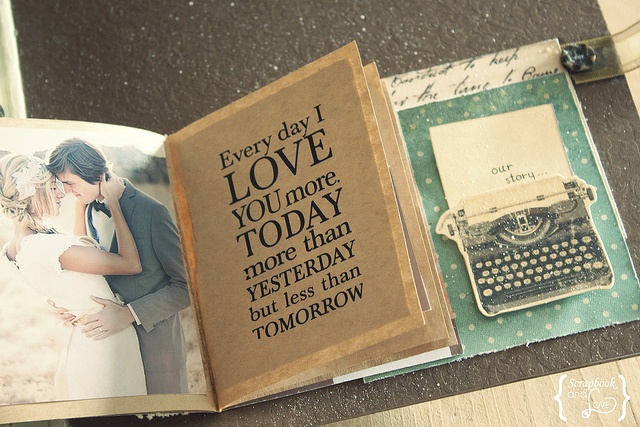 Every day I
LOVE
YOU more.
TODAY
more than
YESTERDAY
but less than
TOMORROW
to keep
the time to
our
story...
Scrapbook
and
Love